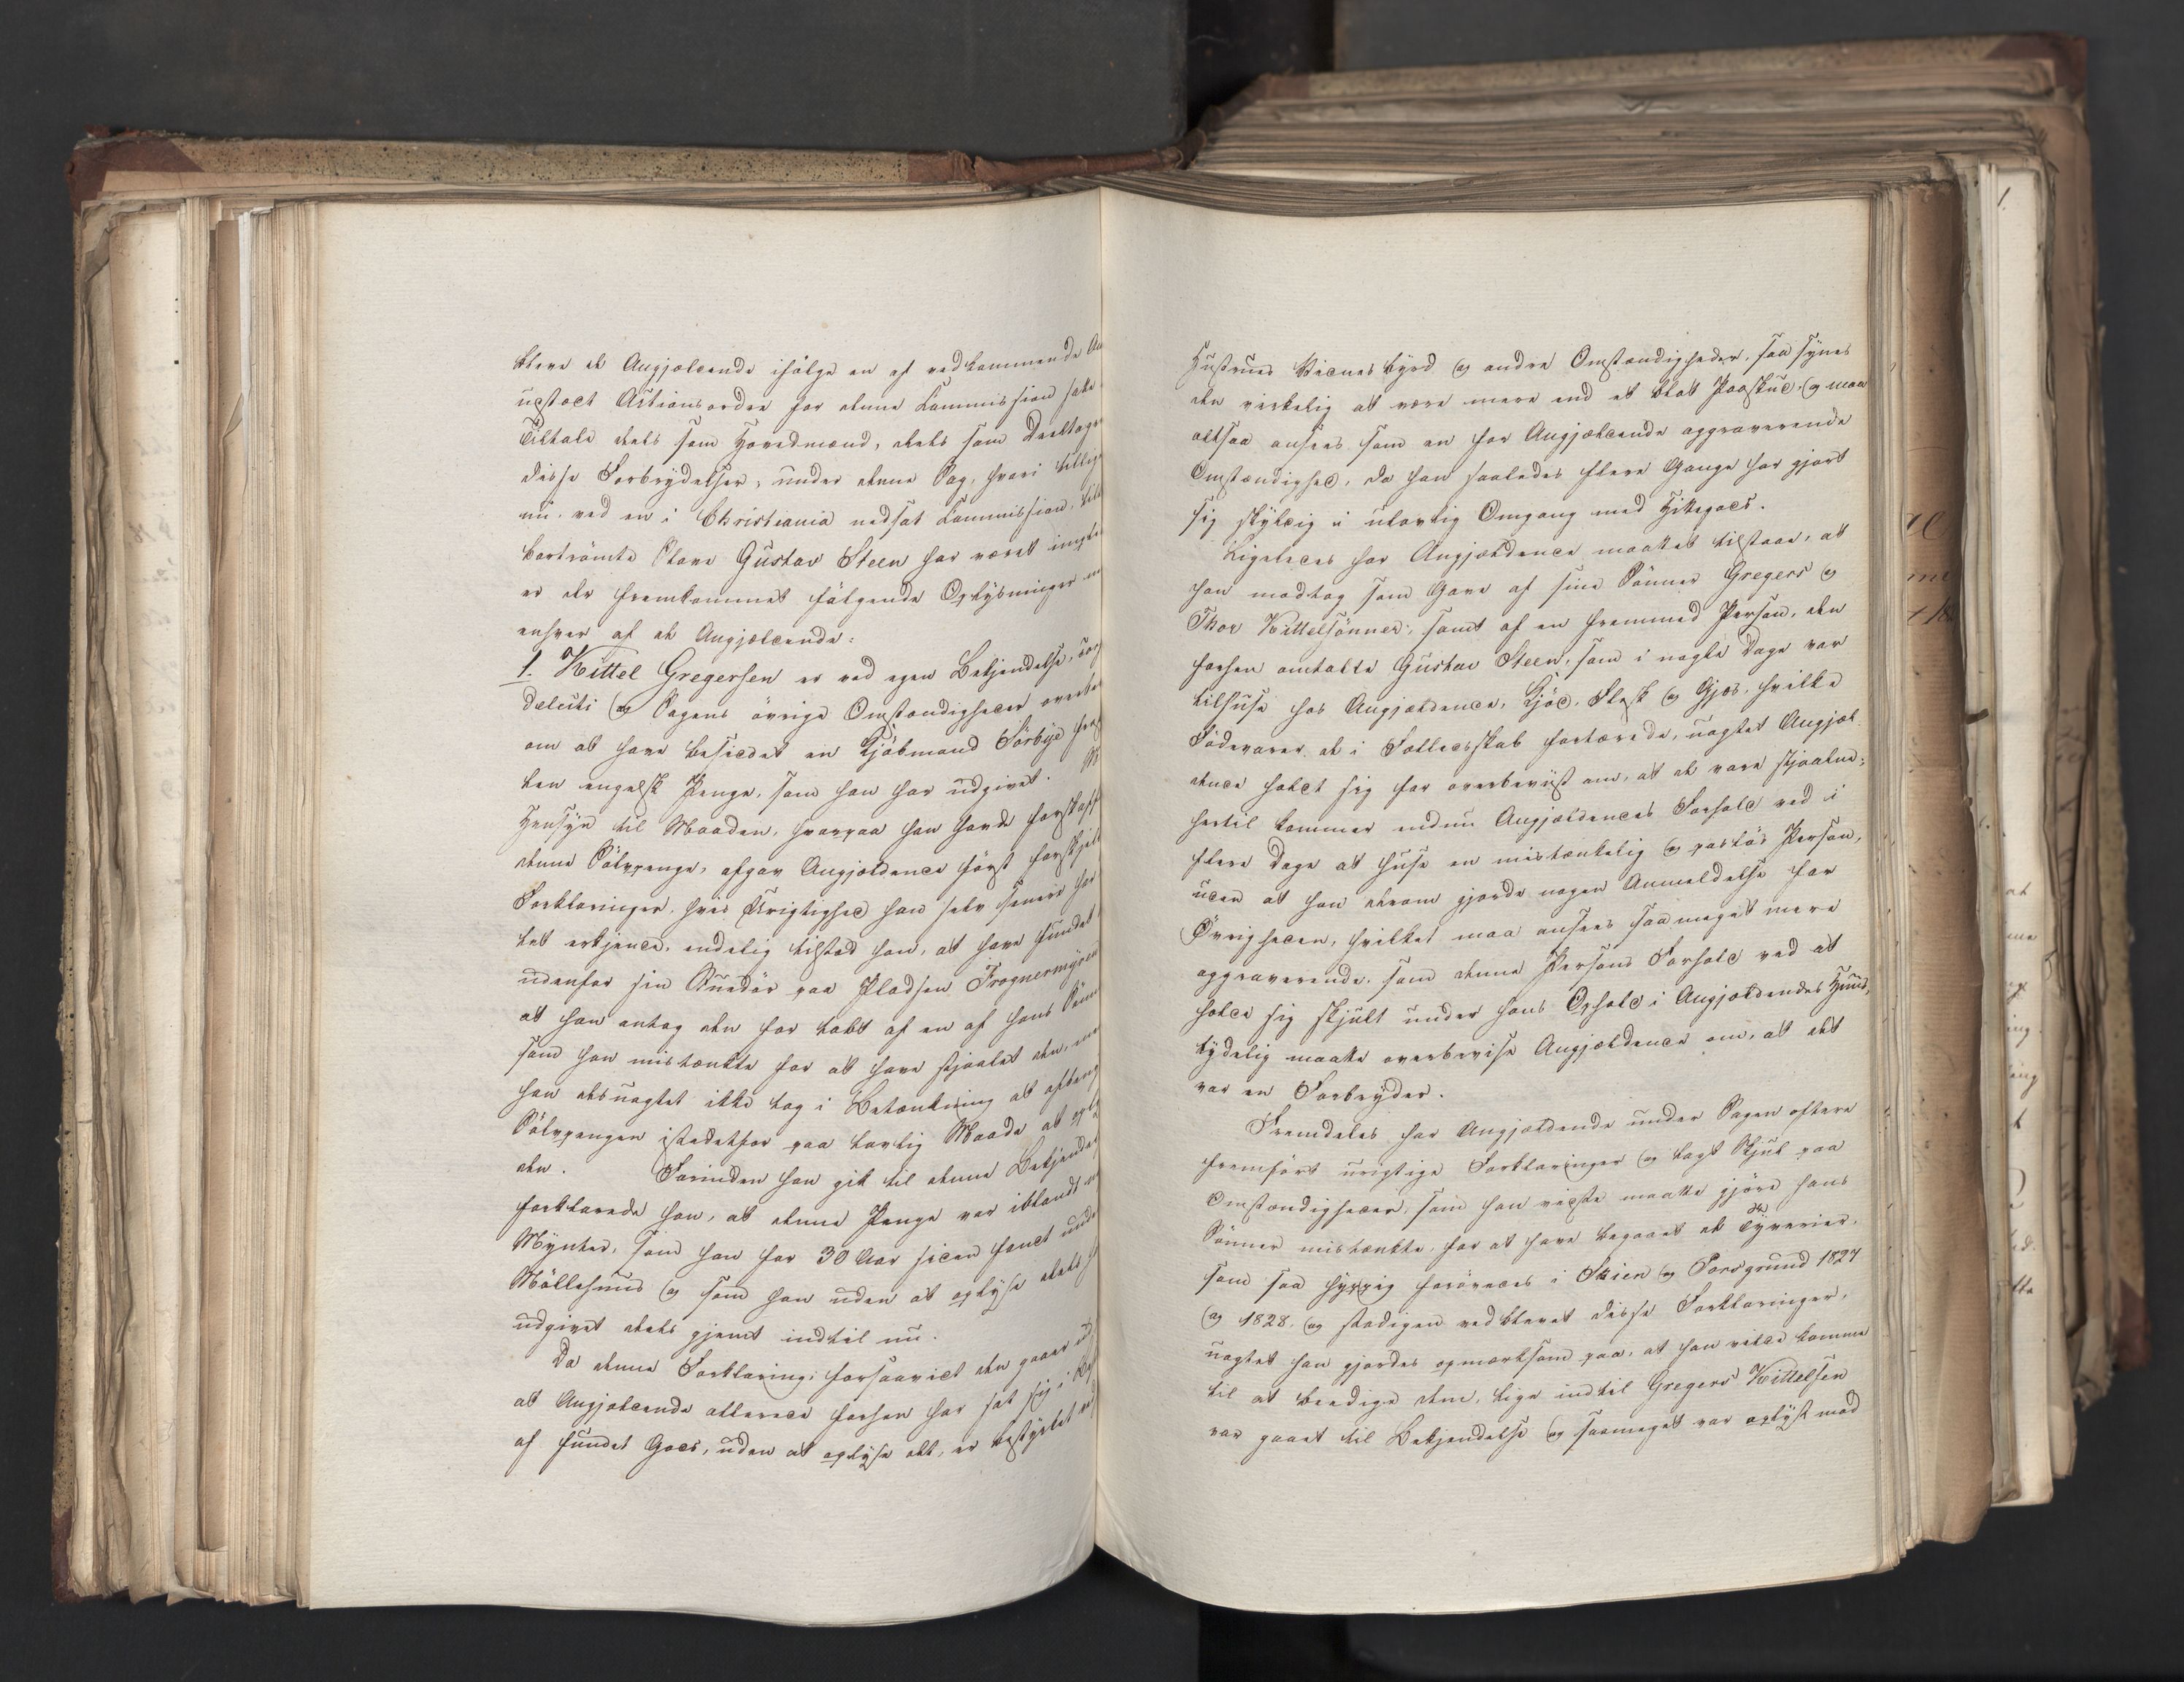 bleve de Angjældende ifølge en af vedkommende Au
udstædt Actionsordre for denne Commission satte
Tiltale dels som Hovedmænd, dels som Deeltage
disse Forbrydelser, under denne Sag, hvori tillige
nu ved en i Christiania nedsat Commission, till
bortrömte Slave Gustav Steen har været ind
er der fremkommet følgende Oplysninger
enhver af de Angjældende:
1. Kittel Gregersen er ved egen Bekjendelse, Cor
delicti og Sagens övrige Omstændigheder overbe
om at have besiddet en Kjöbmand Sörbye fra
len engelsk Penge, som han har udgivet. M
Hensyn til Maaden, hvorpaa han havde forskaff
denne Sölvpenge, afgav Angjældende först forskjell
Forklaringer, hvis Urigtighed han selv senere har
tet erkjende, endelig tilstod han, at have fundet
udenfor sin Stuedör paa Pladsen Frognermyren
at han antog den for tabt af en af hans Sönn
som han mistænkte for at have stjaalet den, me
han desuagtet ikke tog i Betænkning at afbenyt
Sölvpengen istedetfor paa lovlig Maade at oply
den. Forinden han gik til denne Bekjendel
forklarede han, at denne Penge var iblandt
Mynter, som han for 30 Aar siden fandt unde
Möllehuus og som han uden at oplyse
udgivet dels gjemt indtil nu.
Da denne Forklaring, forsaavidt den gaaer ud
at Angjældende allerede forhen har sat sig i Be
af fundet Gods, uden at oplyse det, er bestyrket ved
Hustrues Vidnesbyrd og andre Omstændigheder, saa synes
den virkelig at være mere end et blot Paaskud, og maa
altsaa ansees som en for Angjældende aggraverende
Omstændighed, da han saaledes flere Gange har gjort
sig skyldig i ulovlig Omgang med Hittegods.
Ligeledes har Angjældende maattet tilstaae, at
han modtog som Gave af sine Sönner Gregers og
Thor Kittelsönner, samt af en fremmed Person, den
forhen omtalte Gustav Steen, som i nogle Dage var
tilhuse hos Angjældende, Kjöd, Flesk og Gjæs, hvilke
Födevarer de i Fællesskab fortærede, uagtet Angjæl-
dende holdt sig for overbeviist om, at de vare stjaalne;
hertil kommer endnu Angjældendes Forhold ved i
flere Dage at huse en mistænkelig og paslös Person,
uden at han derom gjorde nogen Anmeldelse for
Övrigheden, hvilket maa ansees saameget mere
aggraverende, som denne Persons Forhold ved at
holde sig skjult under hans Ophold i Angjældendes Huus,
tydelig maatte overbevise Angjældende om, at det
var en Forbryder.
Fremdeles har Angjældende under Sagen oftere
fremfört urigtige Forklaringer og lagt Skjul paa
Omstændigheder, som han vidste maatte gjöre hans
Sönner mistænkte, for at have begaaet de Tyverier,
som saa hyppig forövedes i Skien og Porsgrund 1827
og 1828, og stadigen vedblevet disse Forklaringer,
uagtet han gjordes opmærksom paa, at han vilde komme
til at beedige dem, lige indtil Gregers Kittelsen
var gaaet til Bekjendelse og saameget var oplyst mod